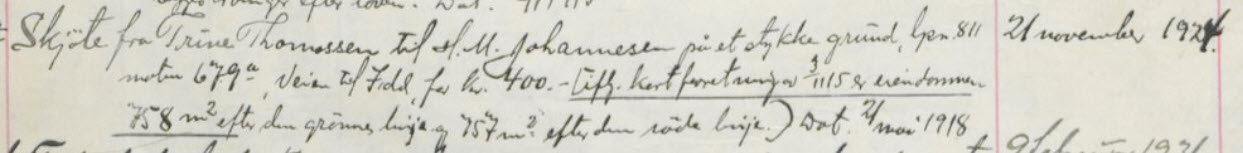 Skjöte fra Trine Thomassen til H. M. Johannesen på et stykke grund, lpn. 811 21 november 1921.
matn 679a, Veien til Fidd, for kr. 400.- (ifg. kartforretning av 3/11 15 er eiendommen
758 m² efter den grönne linje og 757 m² efter den röde linje.) Dat. 21/ mai 1918